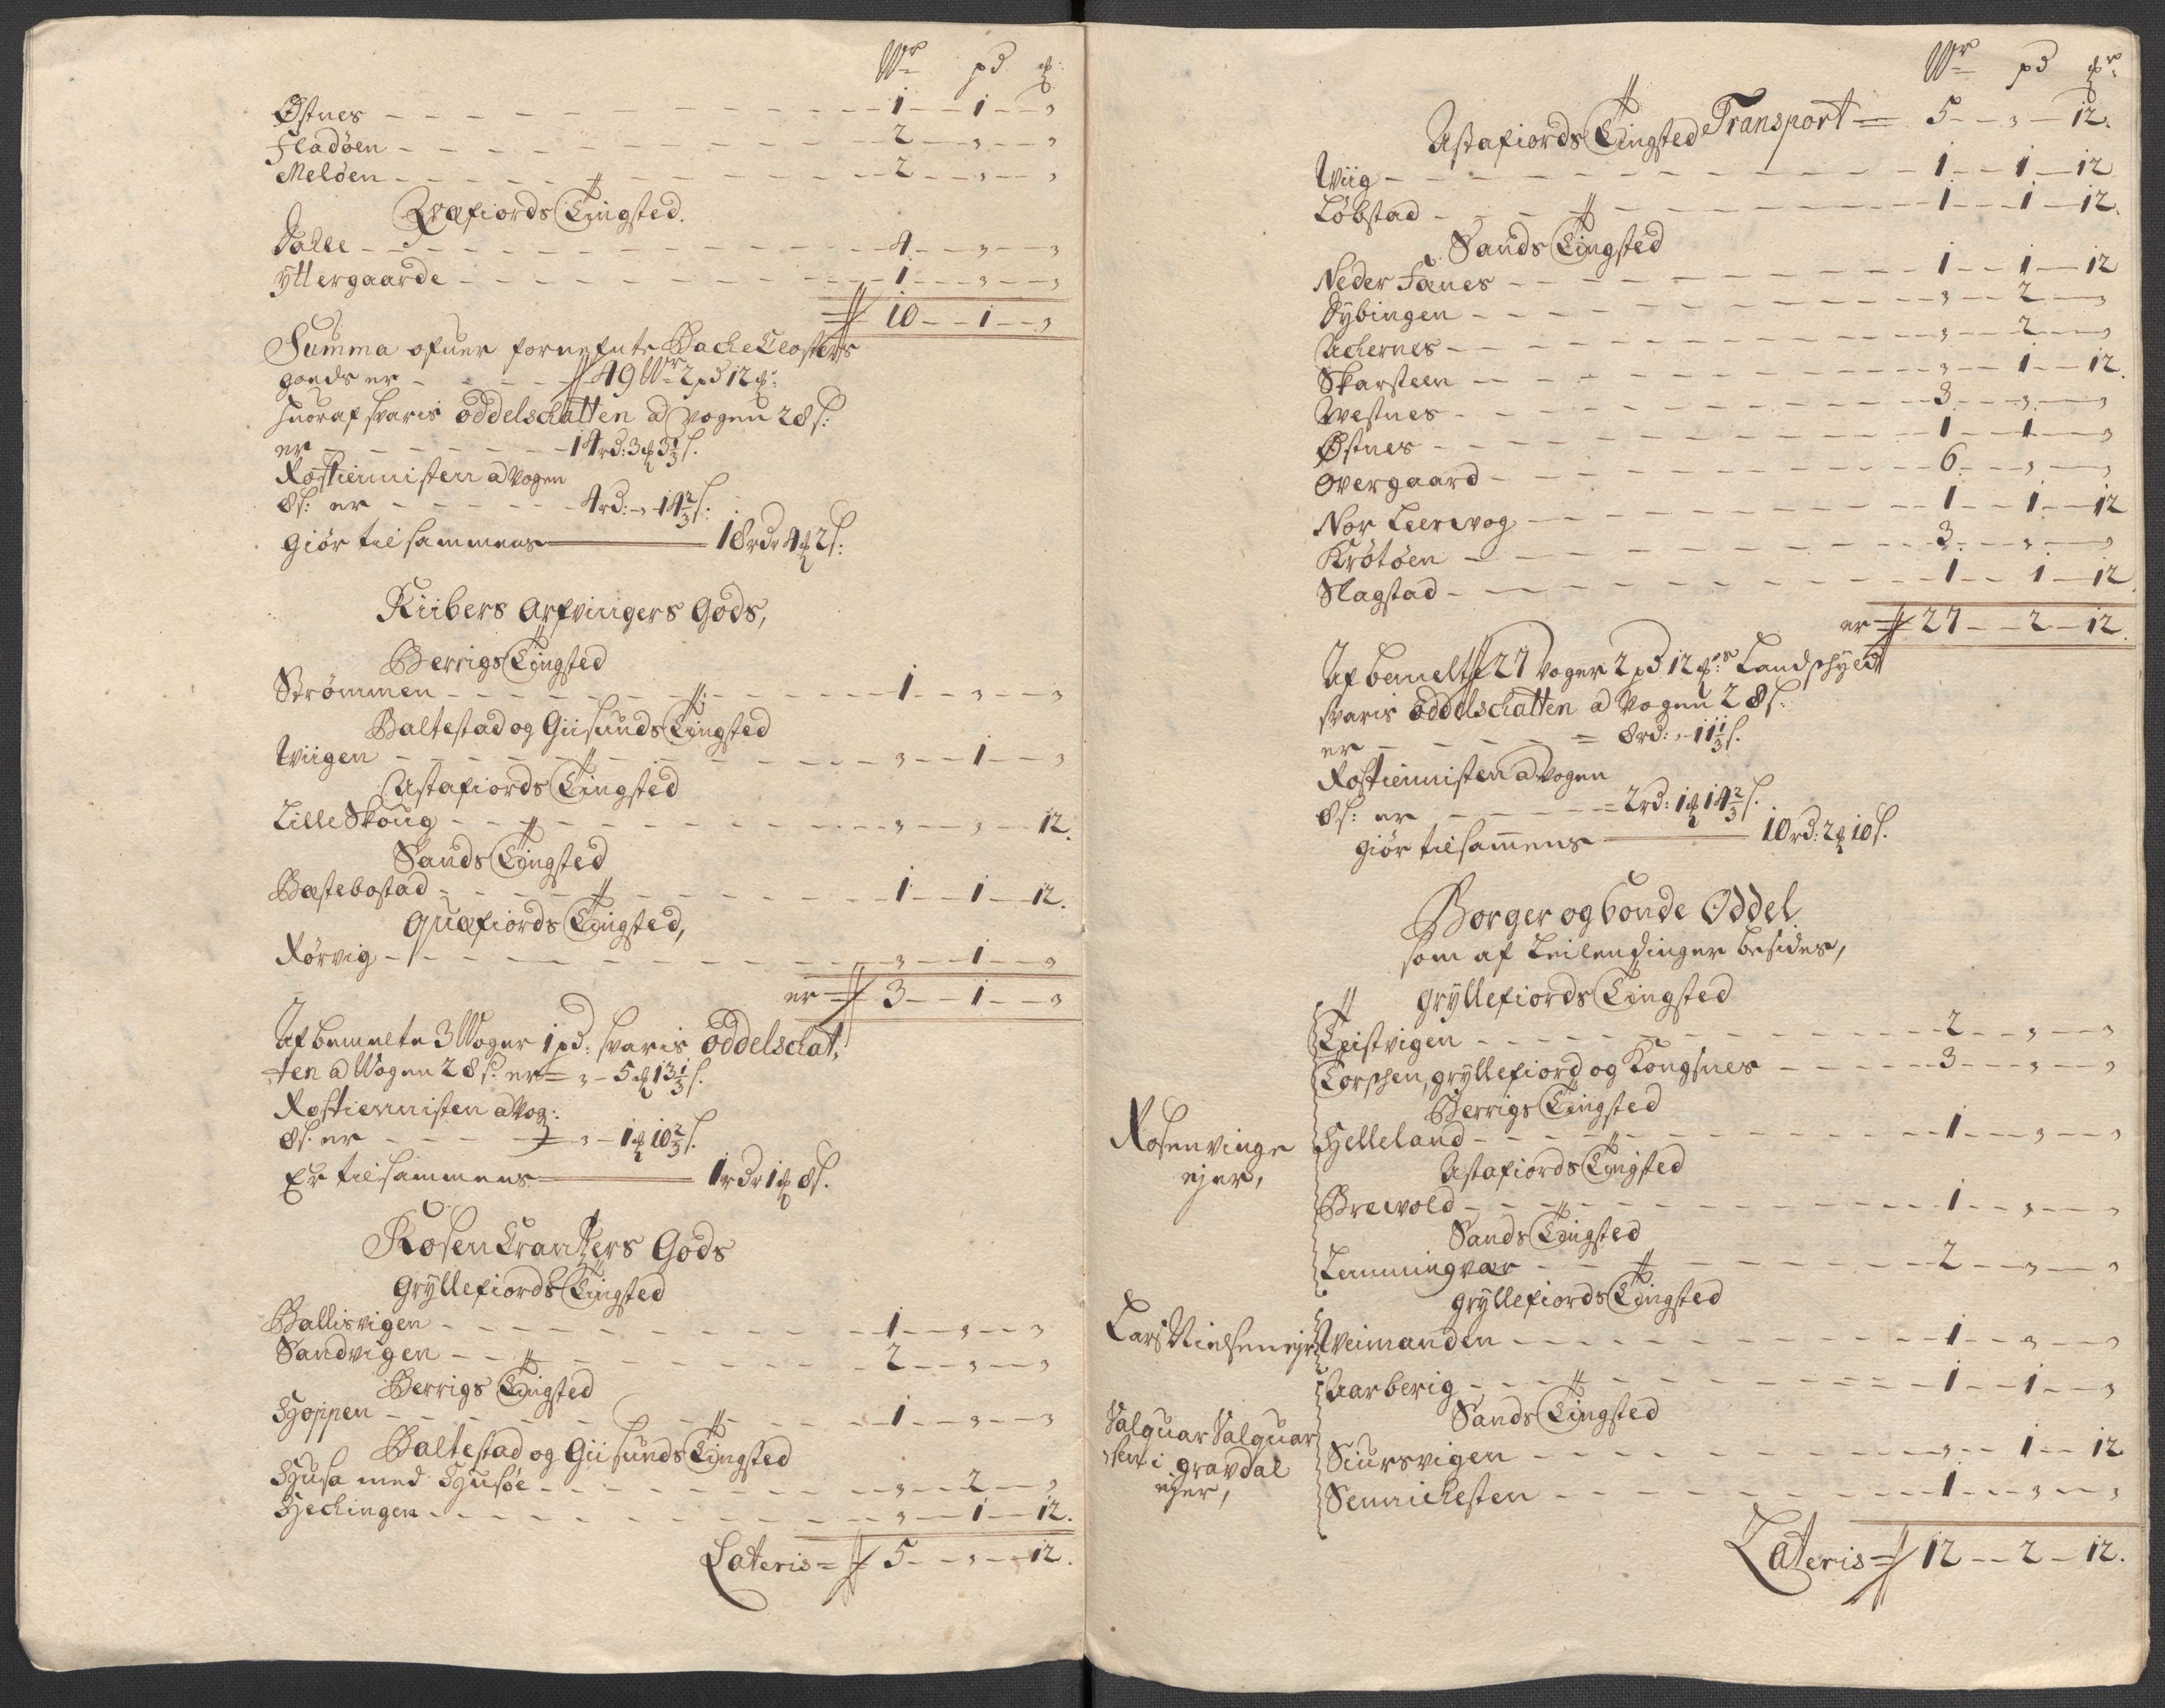 Wr pd ₰:
Østnes – 1 – 1 – „
Fladøen – 2 – „ – „
Meløen – 2 – „ – „
Qvæfiords Tingsted.
Dahle – 4 – „ – „
Yttergaarde – 1 – „ – „
10 – 1 – „
Summa ofuer fornefnte Bache Closters
goeds er – 49 Wr 2 pd 12 ₰:
huoraf svaris oddelschatten a vogen 28 s:
er – 14 rd: 3 ₰ 3 1/3 s.
Rostiennisten a Vogen
8 s: er – 4 rd: „ 14 2/3 s:
giør tilsammens 18 rdr 4 ₰ 2 s:
Kiibers Arfvingers Gods,
Berrigs Tingsted
Strømmen – 1 – „ – „
Baltestad og Giisunds Tingsted
Wiigen – „ – 1 – „
Astafiords Tingsted
Lille Skoug – „ – „ – 12.
Sands Tingsted
Bastebostad – 1 – 1 – 12.
Quæfiords Tingsted,
Rørvig – „ – 1 – „
er 3 – 1 – „
Af bemelte 3 Woger 1 pd: svaris oddelschat,
ten a Wogen 28 s: er = „ – 5 ₰ 13 1/3 s.
Rostiennisten a Vog:
8 s. er – „ – 1 ₰ 10 2/3 s.
Er tilsammens 1 rdr 1 ₰ 8 s.
Rosen Crantzers Gods
Gryllefiords Tingsted
Ballisvigen – 1 – „ – „
Sandvigen – 2 – „ – „
Berrigs Tingsted
Hoppen – 1 – „ – „
Baltestad og Giisunds Tingsted
Husa med Husøe – „ – 2 – „
Hechingen – „ – 1 – 12.
Lateris = 5 – „ – 12.
Wr pd ₰r
Astafiords Tingsted Transport = 5 – „ – 12.
Wiig – 1 – 1 – 12
Løbstad – 1 – 1 – 12.
Sands Tingsted
Neder Fænes – 1 – 1 – 12
Dybingen – „ – 2 – „
Achernes – „ – 2 – „
Skarsteen – „ – 1 – 12.
Westnes – 3 – „ – „
Østnes – 1 – 1 – „
Overgaard – 6 – „ – „
Nor Leervog – 1 – 1 – 12
Krøtøen – 3 – „ – „
Slagstad – 1 – 1 – 12.
er 27 – 2 – 12.
Af bemelte 27 Voger 2 pd 12 ₰rs Landschyld
svaris oddelschatten a Vogen 28 s:
er – = 8 rd: „ 11 1/3 s.
Rostiennisten a Vogen
8 s: er – = 2 rd: 1 ₰ 14 2/3 s.
giør tilsammens 10 rd: 2 ₰ 10 s.
Borger og bonde Oddel
som af Leilendinger besides,
Gryllefiords Tingsted
Teistvigen – 2 – „ – „
Torschen, gryllefiord og Kongsnes – 3 – „ – „
Berrigs Tingsted
Rosenvinge Helleland – 1 – „ – „
ejer,
Astafiords Tingsted
Brevold – 1 – „ – „
Sands Tingsted
Lemmingvær – 2 – „ – „
Gryllefiords Tingsted
Lars Nielsen ejer Weimanden – 1 – „ – „
Aarberig – 1 – 1 – „
Sands Tingsted
Valquar Valquar
sen i gravdal Siursvigen – „ – 1 – 12
ejer, Sennichesten – 1 – „ – „
Lateris = 12 – 2 – 12.